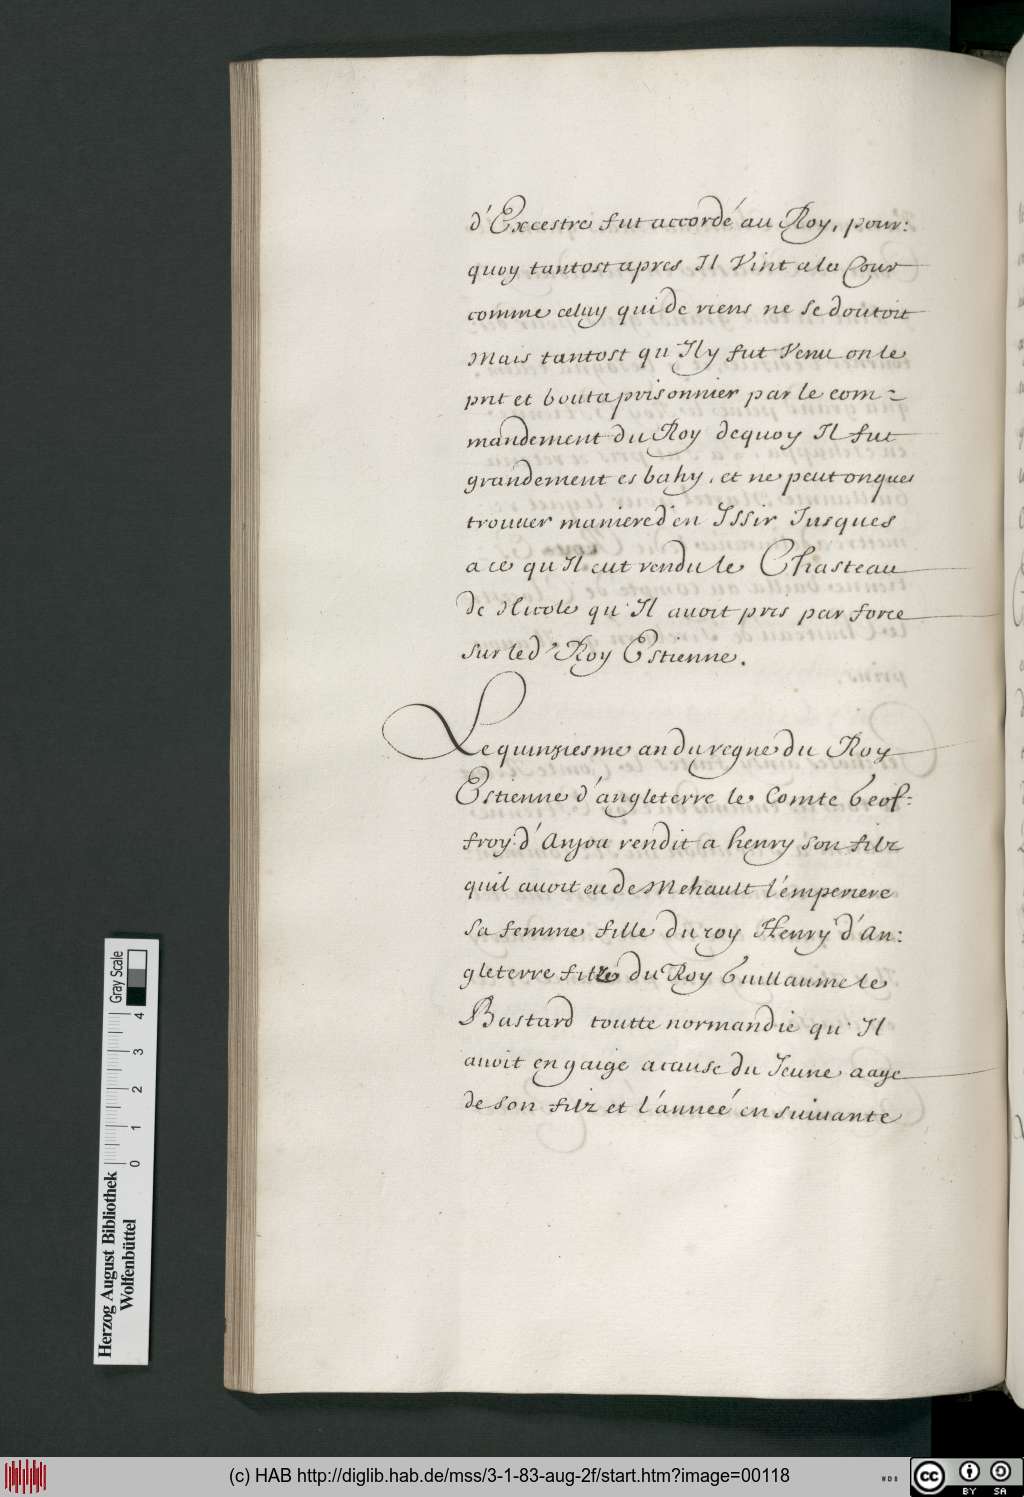 d'Excestre fut accordé au Roy, pour:
quoy tantost apres Il Vint a la Cour
comme celuy qui de riens ne se doutoit
Mais tantost qu'Il y fut Venu on le
prit et bouta prisonnier par le com-
mandement du Roy dequoy Il fut
grandement esbahy, et ne peut onques
trouuer maniere d'en Issir Jusques
a ce qu'Il eut rendu le Chasteau
de Nicole qu'Il auoit pris par force
sur led' Roy Estienne.
Le quinziesme an du regne du Roy
Estienne d'angleterre le Comte Geof:
froy d'Anjou rendit a henry son filz
quil auoit eu de Mehault l'emperiere
sa femme fille du roy Henry d'An:
gleterre filz du Roy Guillaume le
Bastard toutte normandie qu'Il
auoit en gaige a cause du Jeune aage
de son filz et l'anneé ensuiuante
Herzog August Bibliothek
Wolfenbüttel
0 1 2 3 4
Gray Scale
(c) HAB http://diglib.hab.de/mss/3-1-83-aug-2f/start.htm?image=00118
WDB
cc
BY SA